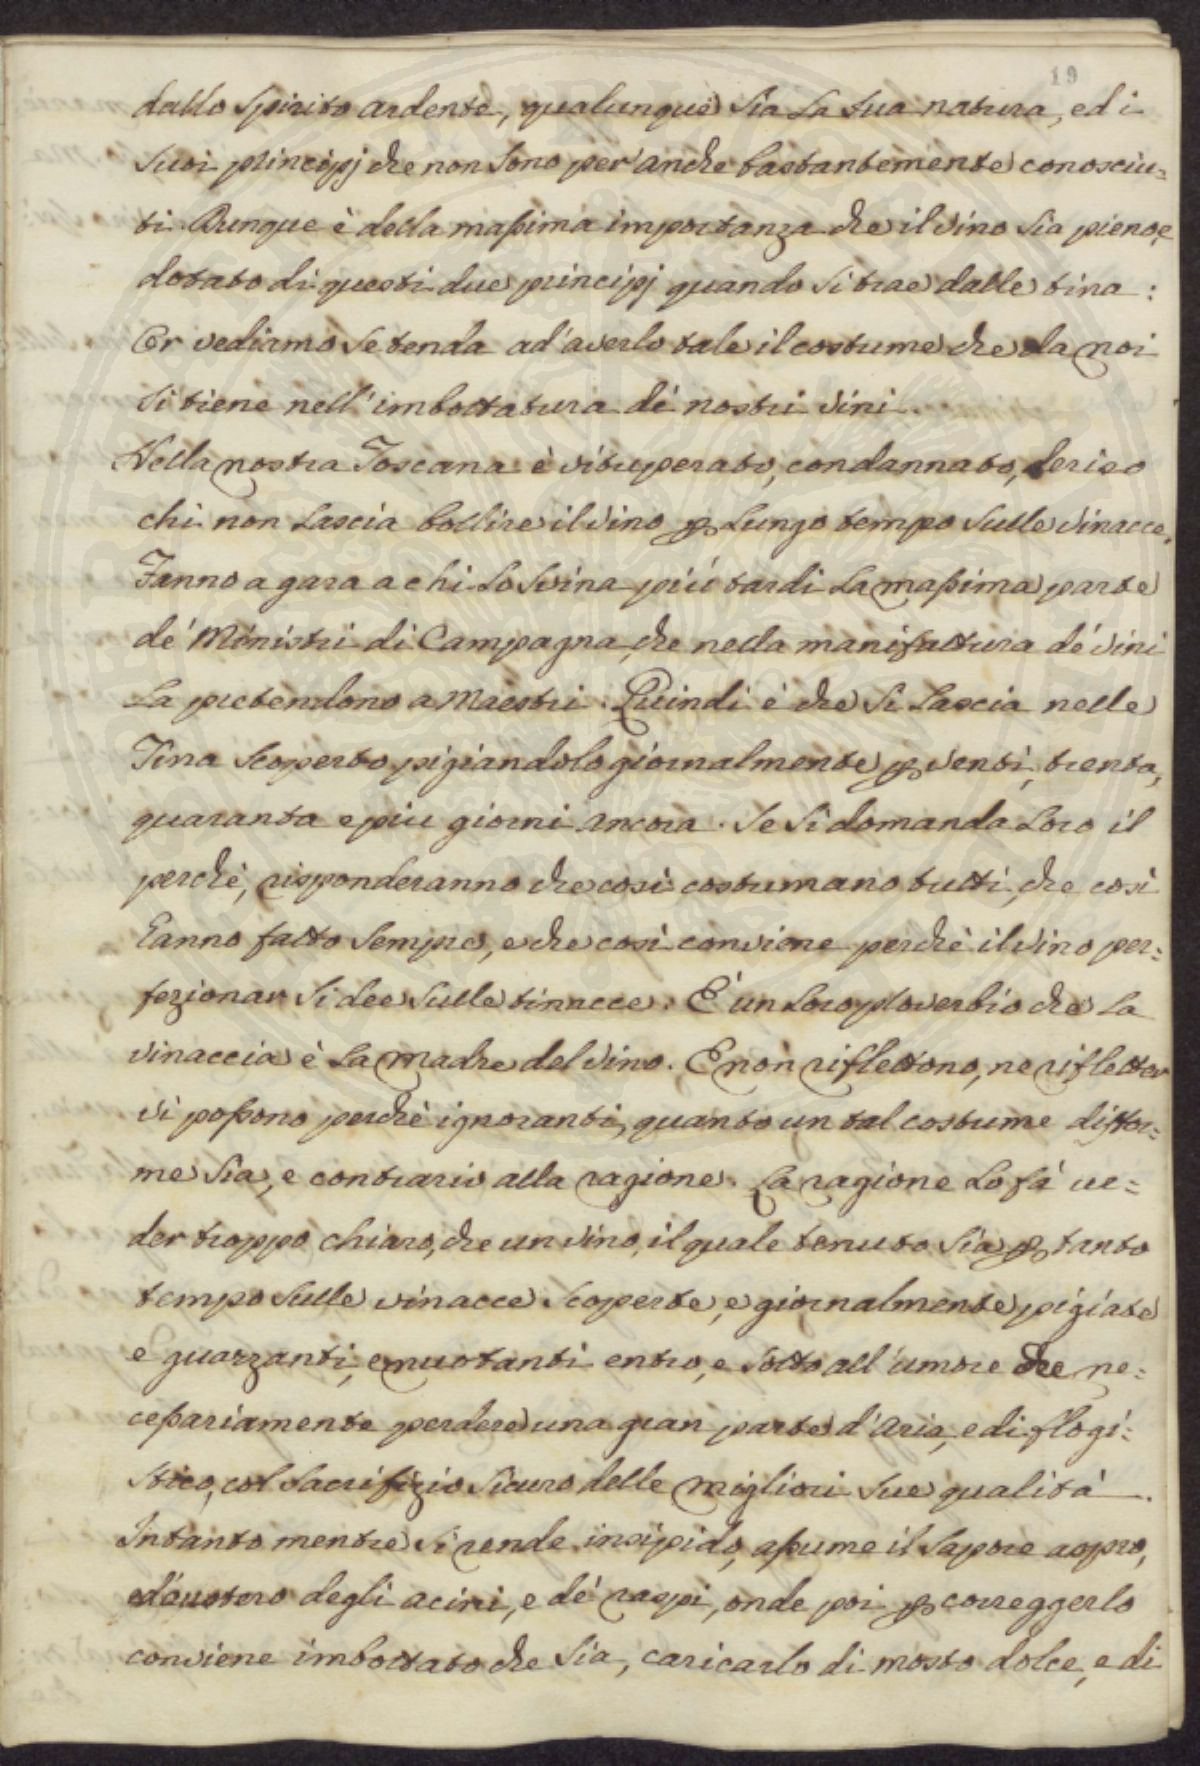 19
dallo Spirito ardente, qualunque Sia La Sua natura, ed i
Suoi principj che non Sono per anche bastantemente conosciu=
ti. Dunque è della massima importanza che il Vino Sia pieno, e
dotato di questi due principj quando Si trae dalle tina:
Or vediamo Se tenda ad'averlo tale il costume che da noi
Si tiene nell'imbottatura dé nostri Vini.
Nella nostra Toscana è vituperato, condannato, deriso
chi non Lascia bollire il Vino p Lungo tempo Sulle Vinacce.
Fanno a gara a chi Lo Svina piú tardi La massima parte
dé Ministri di Campagna, che nella manifattura dé Vini
La pretendono a Maestri. Quindi è che Si Lascia nelle
Tina Scoperto pigiandolo giornalmente p venti, trenta,
quaranta e piu giorni ancora. Se Si domanda Loro il
perchè, risponderanno che così costumano tutti, che così
Eanno fatto Sempre, e che così conviene perchè il Vino per=
fezionar Si dee Sulle vinacce. É un Loro proverbio che La
vinaccia è La madre del Vino. E non riflettono, ne rifletter
vi possono perchè ignoranti, quanto un tal costume diffor=
me Sia, e contrario alla ragione. La ragione Lo fá ve=
der troppo chiaro, che un Vino, il quale tenuto Sia p tanto
tempo Sulle vinacce Scoperte, e giornalmente pigiate
e guazzanti, e nuotanti entro, e Sotto all'umore dee ne=
cessariamente perdere una gran parte d'Aria, e di flogi=
Stico, col Sacrifizio Sicuro delle migliori Sue qualitá.
Intanto mentre Si rende insipido, assume il Sapore aspro,
ed'austero degli acini, e dé raspi, onde poi p correggerlo
conviene imbottato che Sia, caricarlo di mosto dolce, e di